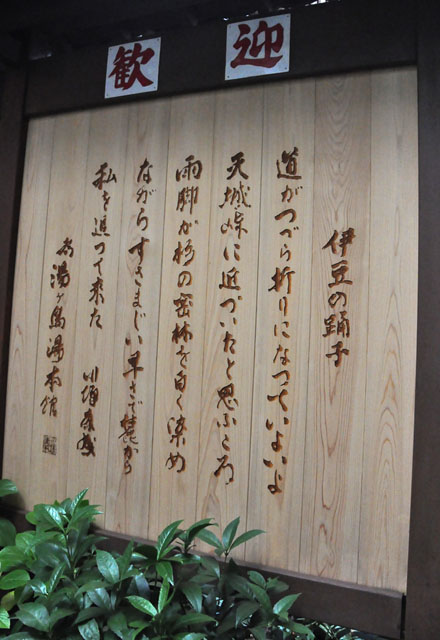 歓迎
伊豆の踊子
道がつづら折りになつていよいよ
天城峠に近づいたと思ふころ
雨脚が杉の密林を白く染め
ながらすさまじい早さで麓から
私を追つて来た 川端康成
為 湯ヶ島湯本館